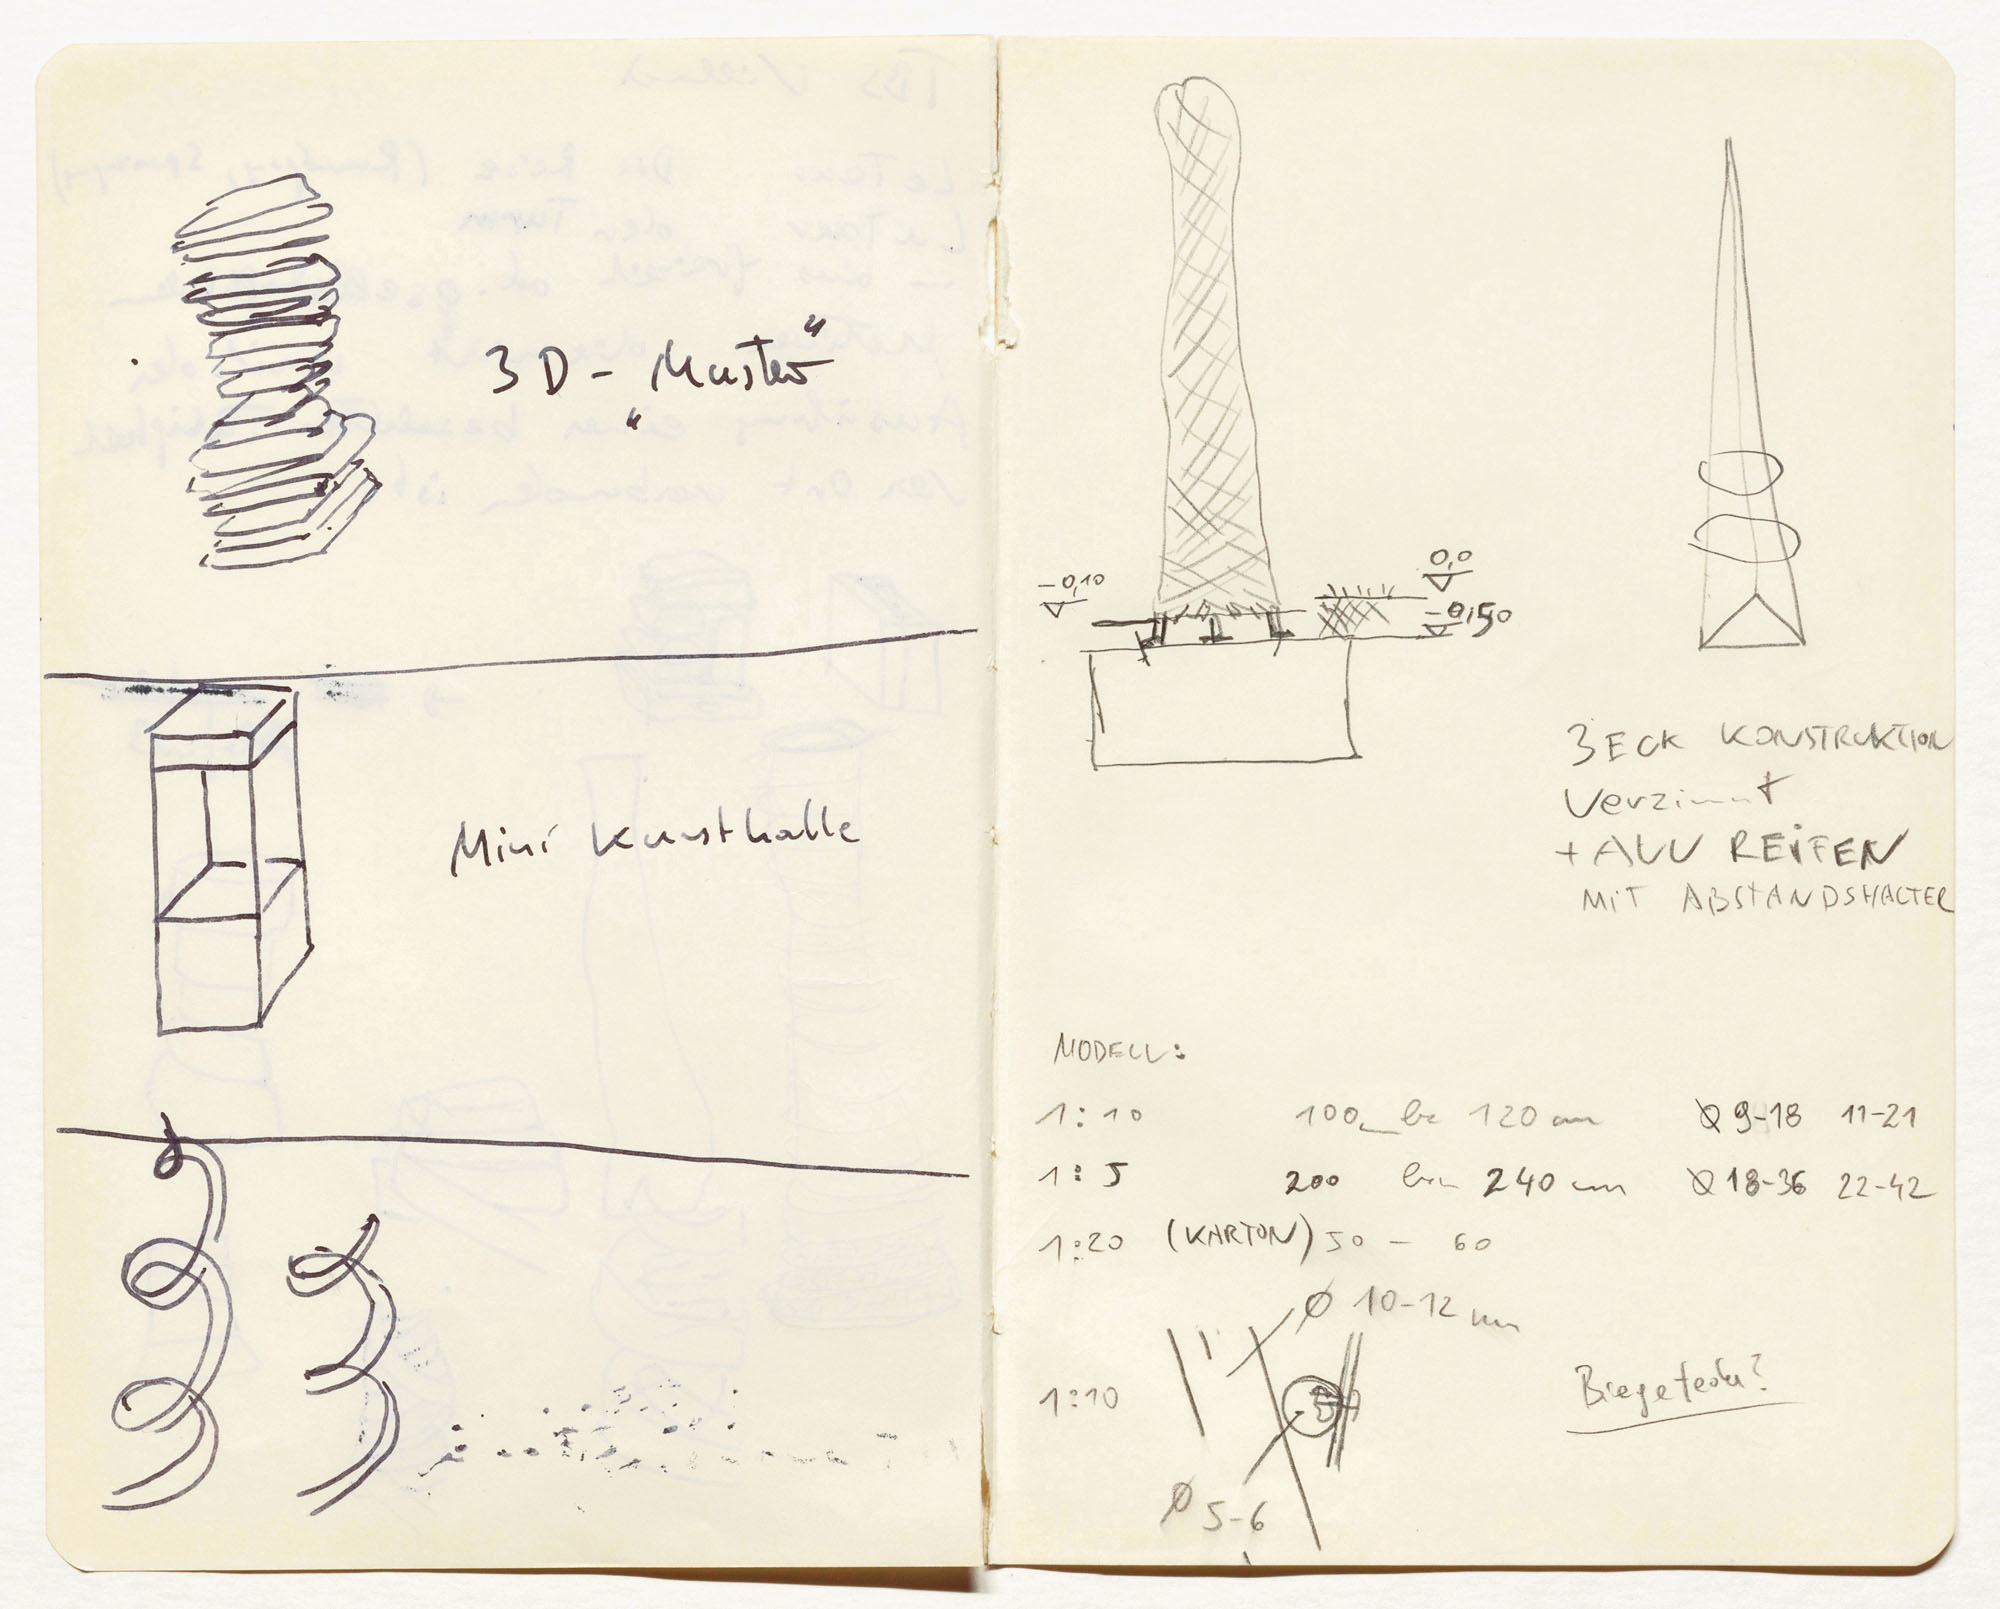 3D - „Muster"
Mini Kunsthalle
-0,10
0,0
-0,50
3ECK KONSTRUKTION
Verzinnt
+ ALU REIFEN
MIT ABSTANDSHALTER
MODELL:
1:10 100 bis 120 cm Ø 9-18 11-21
1:5 200 bis 240 cm Ø 18-36 22-42
1:20 (KARTON) 50 - 60
Ø 10-12 mm
1:10
Ø 5-6